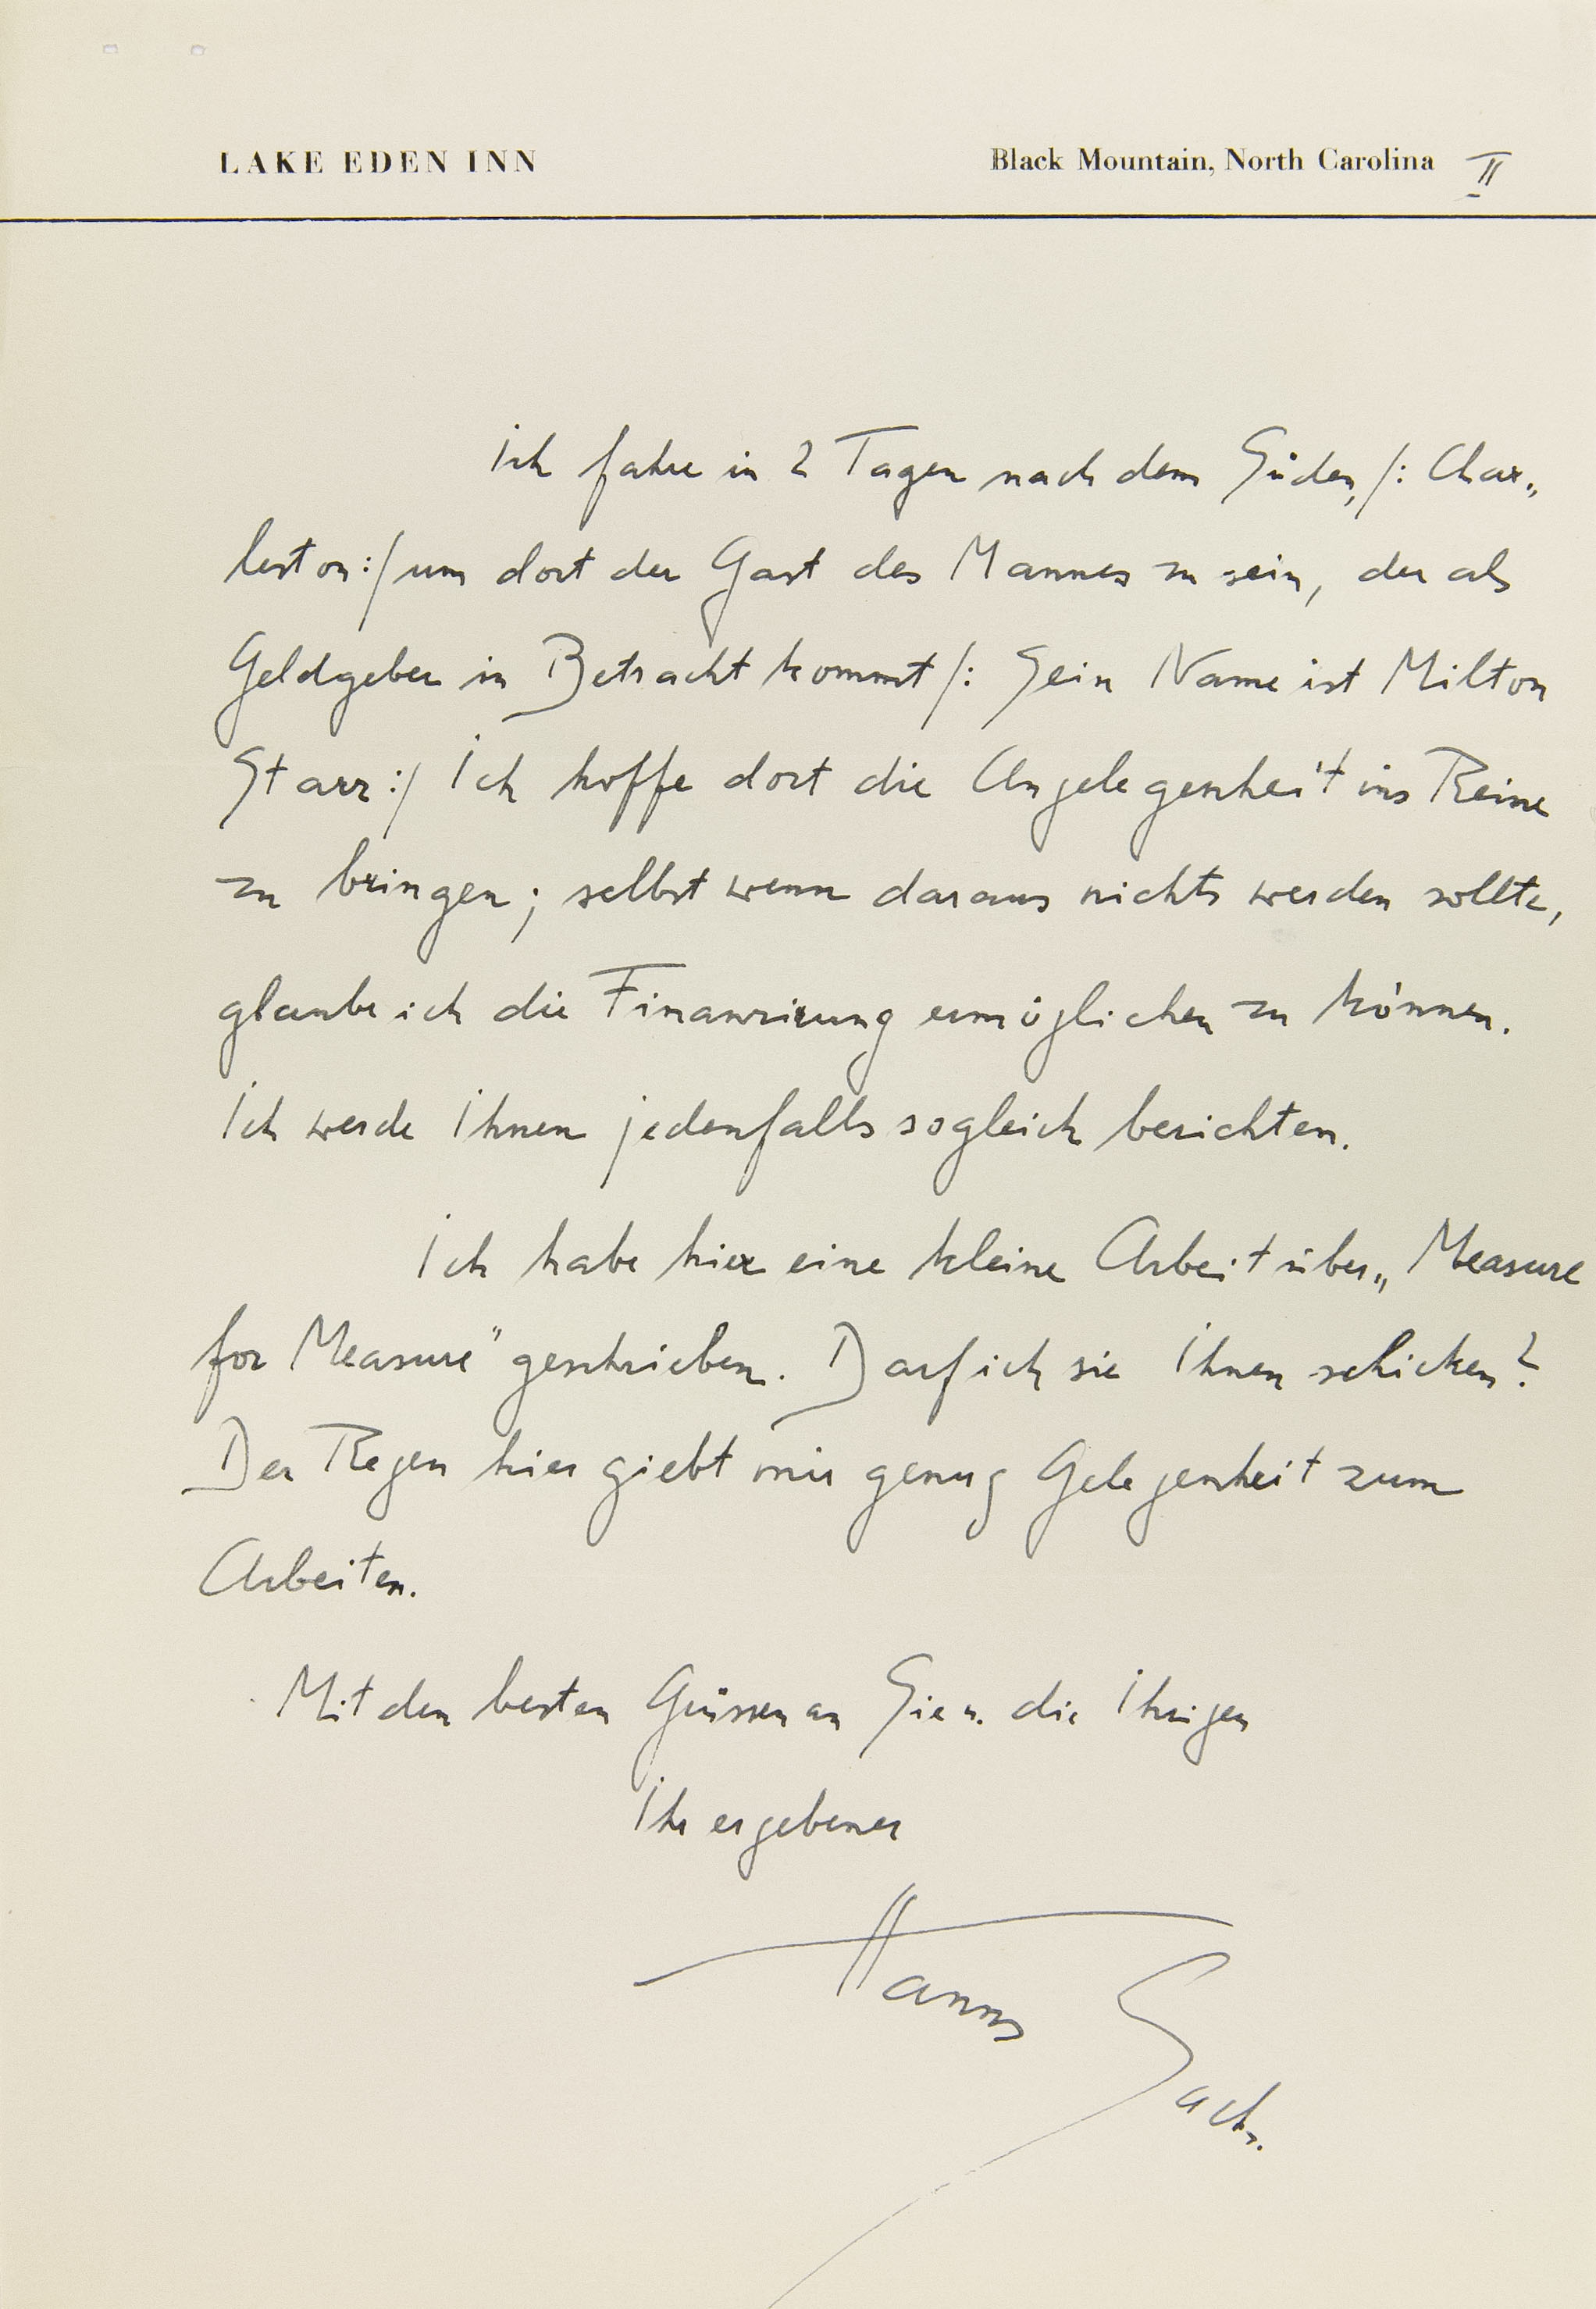 LAKE EDEN INN Black Mountain, North Carolina II
Ich fahre in 2 Tagen nach dem Süden, /: Char„
leston:/ um dort der Gast des Mannes zu sein, der als
Geldgeber in Betracht kommt /: Sein Name ist Milton
Starr :/ Ich hoffe dort die Angelegenheit ins Reine
zu bringen; selbst wenn daraus nichts werden sollte,
glaube ich die Finanzirung ermöglichen zu können.
Ich werde Ihnen jedenfalls sogleich berichten.
Ich habe hier eine kleine Arbeit über „Measure
for Measure" geschrieben. Darf ich sie Ihnen schicken?
Der Regen hier giebt mir genug Gelegenheit zum
Arbeiten.
Mit den besten Grüssen an Sie u. die Ihrigen
Ihr ergebener
Hanns Sachs.